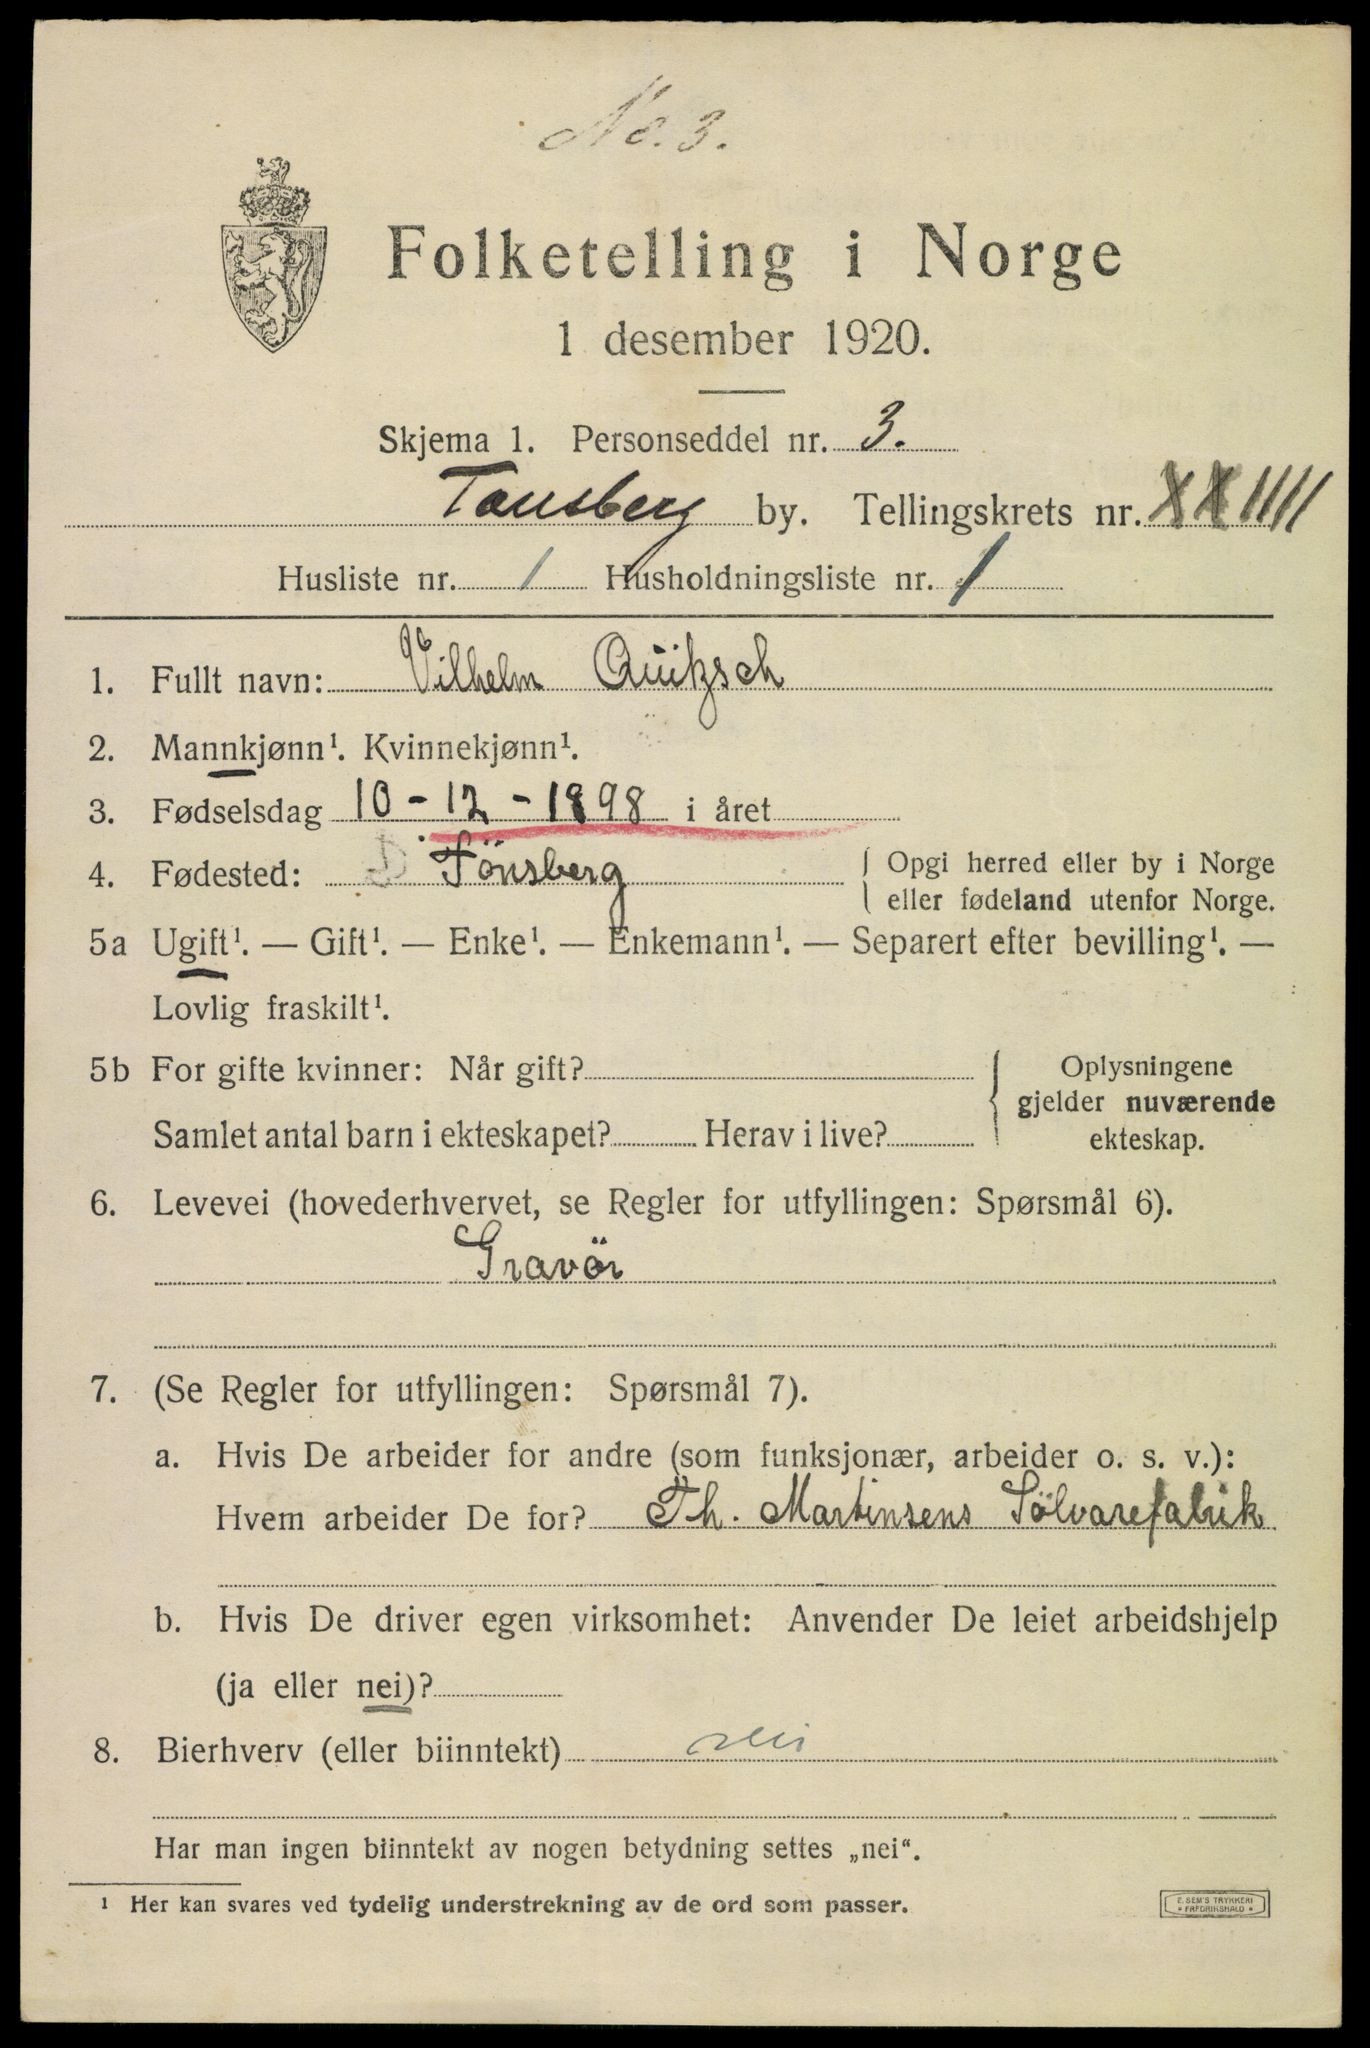 No. 3.
Folketelling i Norge
1 desember 1920.
Skjema 1. Personseddel nr. 3.
Tønsberg by. Tellingskrets nr. XXIIII
Husliste nr. 1 Husholdningsliste nr. 1
1. Fullt navn: Vilhelm Quitzsch
2. Mannkjønn¹. Kvinnekjønn¹.
3. Fødselsdag 10-12-1898 i året
4. Fødested: D Tönsberg { Opgi herred eller by i Norge
eller fødeland utenfor Norge.
5a Ugift¹. — Gift¹. — Enke¹. — Enkemann¹. — Separert efter bevilling¹. —
Lovlig fraskilt¹.
5b For gifte kvinner: Når gift? { Oplysningene
gjelder nuværende
Samlet antal barn i ekteskapet? Herav i live? ekteskap.
6. Levevei (hovederhvervet, se Regler for utfyllingen: Spørsmål 6).
Gravör
7. (Se Regler for utfyllingen: Spørsmål 7).
a. Hvis De arbeider for andre (som funksjonær, arbeider o. s. v.):
Hvem arbeider De for? Th. Martinsens Sölvarefabrik
b. Hvis De driver egen virksomhet: Anvender De leiet arbeidshjelp
(ja eller nei)?
8. Bierhverv (eller biinntekt) nei
Har man ingen biinntekt av nogen betydning settes „nei“.
¹ Her kan svares ved tydelig understrekning av de ord som passer.
E. SEM'S TRYKKERI
FREDRIKSHALD